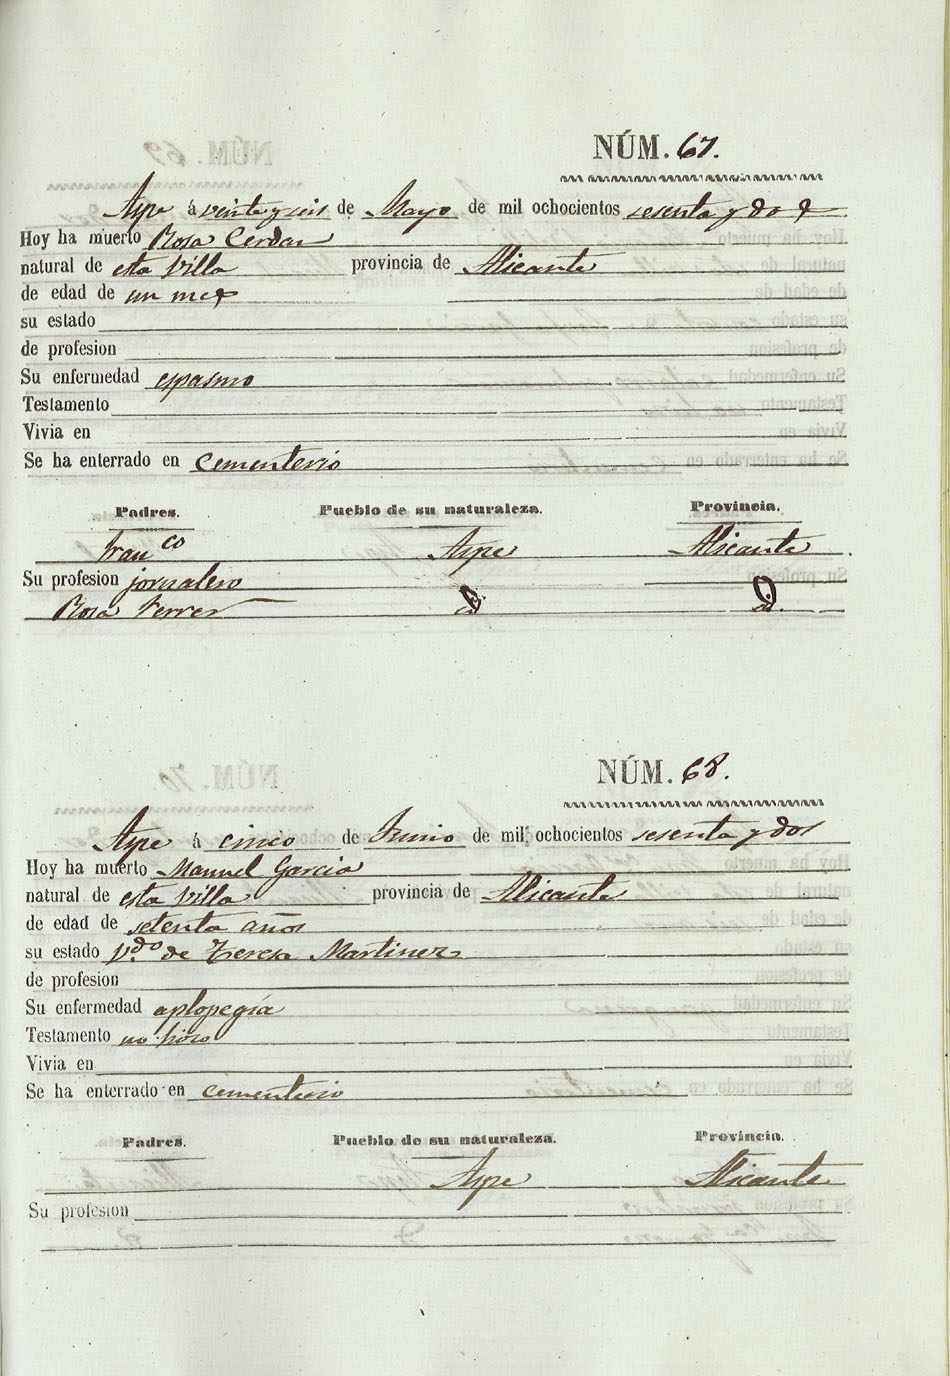 NÚM. 67.
Aspe á veinte y seis de Mayo de mil ochocientos sesenta y dos
Hoy ha muerto Rosa Cerdan
natural de esta Villa provincia de Alicante
de edad de un mes
su estado
de profesion
Su enfermedad espasmo
Testamento
Vivia en
Se ha enterrado en cementerio
Padres. Pueblo de su naturaleza. Provincia.
Franco Aspe Alicante
Su profesion jornalero
Rosa Ferrer id. id.
NÚM. 68.
Aspe á cinco de Junio de mil ochocientos sesenta y dos
Hoy ha muerto Manuel Garcia
natural de esta villa provincia de Alicante
de edad de setenta años
su estado Vdo. de Teresa Martinez
de profesion
Su enfermedad aplopegía
Testamento no hizo
Vivia en
Se ha enterrado en cementerio
Padres. Pueblo de su naturaleza. Provincia.
Aspe Alicante
Su profesion